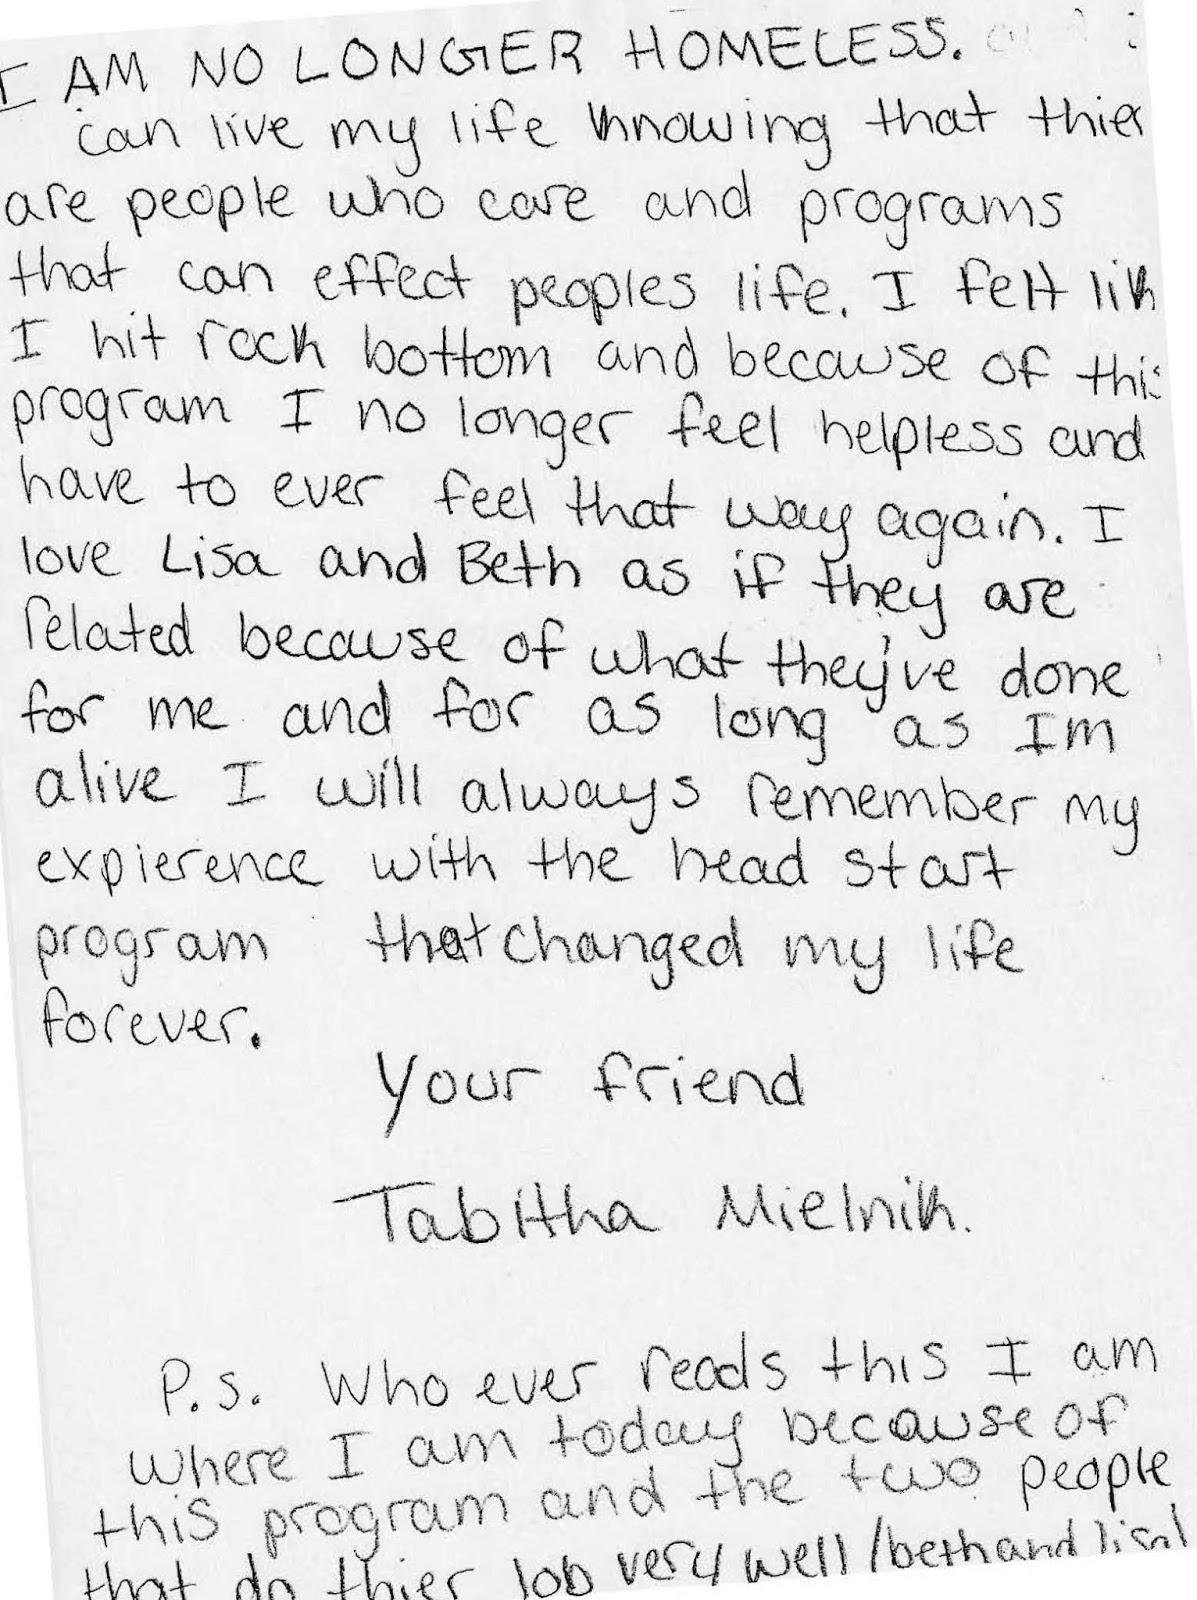 I AM NO LONGER HOMELESS.
can live my life knowing that thier
are people who care and programs
that can effect peoples life. I felt lik
I hit rock bottom and because of this
program I no longer feel helpless and
have to ever feel that way again. I
love Lisa and Beth as if they are
related because of what they've done
for me and for as long as Im
alive I will always remember my
expierence with the head start
program that changed my life
forever.
Your friend
Tabitha Mielnik.
P.s. Who ever reads this I am
where I am today because of
this program and the two people
that do thier job very well /beth and lisa/